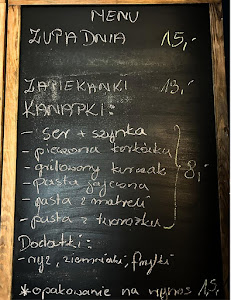 MENU
ZUPA DNIA 15,-
ZAPIEKANKI 13,-
KANAPKI:
- ser + szynka
- pieczona karkówka
- grillowany kurczak
- pasta jajeczna 8,-
- pasta z makreli
- pasta z twarożku
Dodatki:
- ryż, ziemniaki, frytki
*opakowanie na wynos